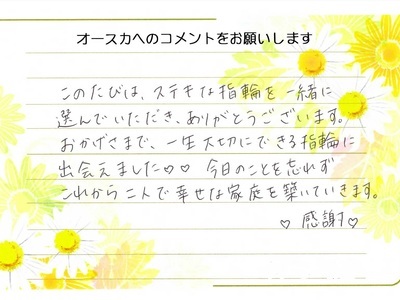 オースカへのコメントをお願いします
このたびは、ステキな指輪を一緒に
選んでいただき、ありがとうございます。
おかげさまで、一生大切にできる指輪に
出会えました♡♡ 今日のことを忘れず
これから二人で幸せな家庭を築いていきます。
♡ 感謝♡